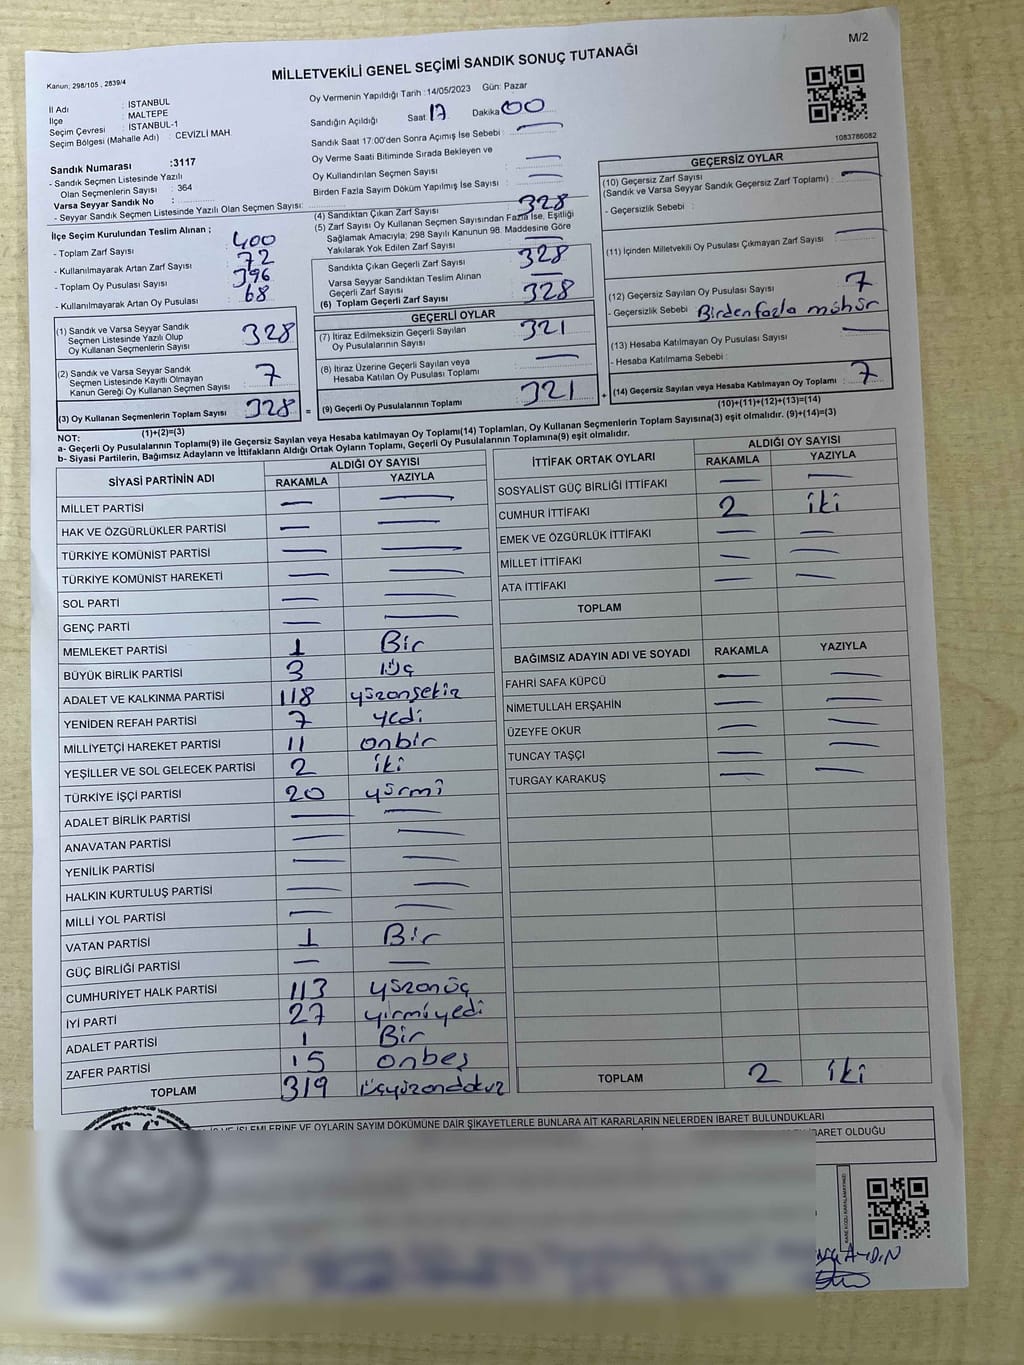 M/2
Kanun; 298/105 , 2839/4
MİLLETVEKİLİ GENEL SEÇİMİ SANDIK SONUÇ TUTANAĞI
İl Adı : İSTANBUL
İlçe : MALTEPE
Seçim Çevresi : İSTANBUL-1
Seçim Bölgesi (Mahalle Adı) : CEVİZLİ MAH.
Oy Vermenin Yapıldığı Tarih : 14/05/2023 Gün: Pazar
Sandığın Açıldığı Saat 17 Dakika 00
Sandık Saat 17:00'den Sonra Açımış İse Sebebi : —
Oy Verme Saati Bitiminde Sırada Bekleyen ve
Oy Kullandırılan Seçmen Sayısı —
Birden Fazla Sayım Döküm Yapılmış İse Sayısı : —
1083786082
Sandık Numarası :3117
- Sandık Seçmen Listesinde Yazılı
Olan Seçmenlerin Sayısı : 364
Varsa Seyyar Sandık No :
- Seyyar Sandık Seçmen Listesinde Yazılı Olan Seçmen Sayısı:
İlçe Seçim Kurulundan Teslim Alınan ;
- Toplam Zarf Sayısı 400
- Kullanılmayarak Artan Zarf Sayısı 72
- Toplam Oy Pusulası Sayısı 396
- Kullanılmayarak Artan Oy Pusulası 68
(1) Sandık ve Varsa Seyyar Sandık
Seçmen Listesinde Yazılı Olup
Oy Kullanan Seçmenlerin Sayısı 328
(2) Sandık ve Varsa Seyyar Sandık
Seçmen Listesinde Kayıtlı Olmayan
Kanun Gereği Oy Kullanan Seçmen Sayısı 7
(3) Oy Kullanan Seçmenlerin Toplam Sayısı 328 =
(1)+(2)=(3)
(4) Sandıktan Çıkan Zarf Sayısı 328
(5) Zarf Sayısı Oy Kullanan Seçmen Sayısından Fazla İse, Eşitliği
Sağlamak Amacıyla; 298 Sayılı Kanunun 98. Maddesine Göre
Yakılarak Yok Edilen Zarf Sayısı —
Sandıkta Çıkan Geçerli Zarf Sayısı 328
Varsa Seyyar Sandıktan Teslim Alınan
Geçerli Zarf Sayısı —
(6) Toplam Geçerli Zarf Sayısı 328
GEÇERLİ OYLAR
(7) İtiraz Edilmeksizin Geçerli Sayılan
Oy Pusulalarının Sayısı 321
(8) İtiraz Üzerine Geçerli Sayılan veya
Hesaba Katılan Oy Pusulası Toplamı —
(9) Geçerli Oy Pusulalarının Toplamı 321 +
GEÇERSİZ OYLAR
(10) Geçersiz Zarf Sayısı —
(Sandık ve Varsa Seyyar Sandık Geçersiz Zarf Toplamı)
- Geçersizlik Sebebi :
(11) İçinden Milletvekili Oy Pusulası Çıkmayan Zarf Sayısı —
(12) Geçersiz Sayılan Oy Pusulası Sayısı 7
- Geçersizlik Sebebi Birden fazla mühür
(13) Hesaba Katılmayan Oy Pusulası Sayısı —
- Hesaba Katılmama Sebebi :
(14) Geçersiz Sayılan veya Hesaba Katılmayan Oy Toplamı 7
(10)+(11)+(12)+(13)=(14)
NOT:
a- Geçerli Oy Pusulalarının Toplamı(9) ile Geçersiz Sayılan veya Hesaba katılmayan Oy Toplamı(14) Toplamları, Oy Kullanan Seçmenlerin Toplam Sayısına(3) eşit olmalıdır. (9)+(14)=(3)
b- Siyasi Partilerin, Bağımsız Adayların ve İttifakların Aldığı Ortak Oyların Toplamı, Geçerli Oy Pusulalarının Toplamına(9) eşit olmalıdır.
SİYASİ PARTİNİN ADI ALDIĞI OY SAYISI
RAKAMLA YAZIYLA
MİLLET PARTİSİ — —
HAK VE ÖZGÜRLÜKLER PARTİSİ — —
TÜRKİYE KOMÜNİST PARTİSİ — —
TÜRKİYE KOMÜNİST HAREKETİ — —
SOL PARTİ — —
GENÇ PARTİ — —
MEMLEKET PARTİSİ 1 Bir
BÜYÜK BİRLİK PARTİSİ 3 üç
ADALET VE KALKINMA PARTİSİ 118 yüzonsekiz
YENİDEN REFAH PARTİSİ 7 yedi
MİLLİYETÇİ HAREKET PARTİSİ 11 onbir
YEŞİLLER VE SOL GELECEK PARTİSİ 2 iki
TÜRKİYE İŞÇİ PARTİSİ 20 yirmi
ADALET BİRLİK PARTİSİ — —
ANAVATAN PARTİSİ — —
YENİLİK PARTİSİ — —
HALKIN KURTULUŞ PARTİSİ — —
MİLLİ YOL PARTİSİ — —
VATAN PARTİSİ 1 Bir
GÜÇ BİRLİĞİ PARTİSİ — —
CUMHURİYET HALK PARTİSİ 113 yüzonüç
İYİ PARTİ 27 yirmiyedi
ADALET PARTİSİ 1 Bir
ZAFER PARTİSİ 15 onbeş
TOPLAM 319 üçyüzondokuz
İTTİFAK ORTAK OYLARI ALDIĞI OY SAYISI
RAKAMLA YAZIYLA
SOSYALIST GÜÇ BİRLİĞİ İTTİFAKI — —
CUMHUR İTTİFAKI 2 iki
EMEK VE ÖZGÜRLÜK İTTİFAKI — —
MİLLET İTTİFAKI — —
ATA İTTİFAKI — —
TOPLAM
BAĞIMSIZ ADAYIN ADI VE SOYADI RAKAMLA YAZIYLA
FAHRİ SAFA KÜPCÜ — —
NİMETULLAH ERŞAHİN — —
ÜZEYFE OKUR — —
TUNCAY TAŞÇI — —
TURGAY KARAKUŞ — —
TOPLAM 2 iki
T.C.
VE İŞLEMLERİNE VE OYLARIN SAYIM DÖKÜMÜNE DAİR ŞİKAYETLERLE BUNLARA AİT KARARLARIN NELERDEN İBARET BULUNDUKLARI
İBARET OLDUĞU
KARE KODU KARALAMAYINIZ!
AYDIN